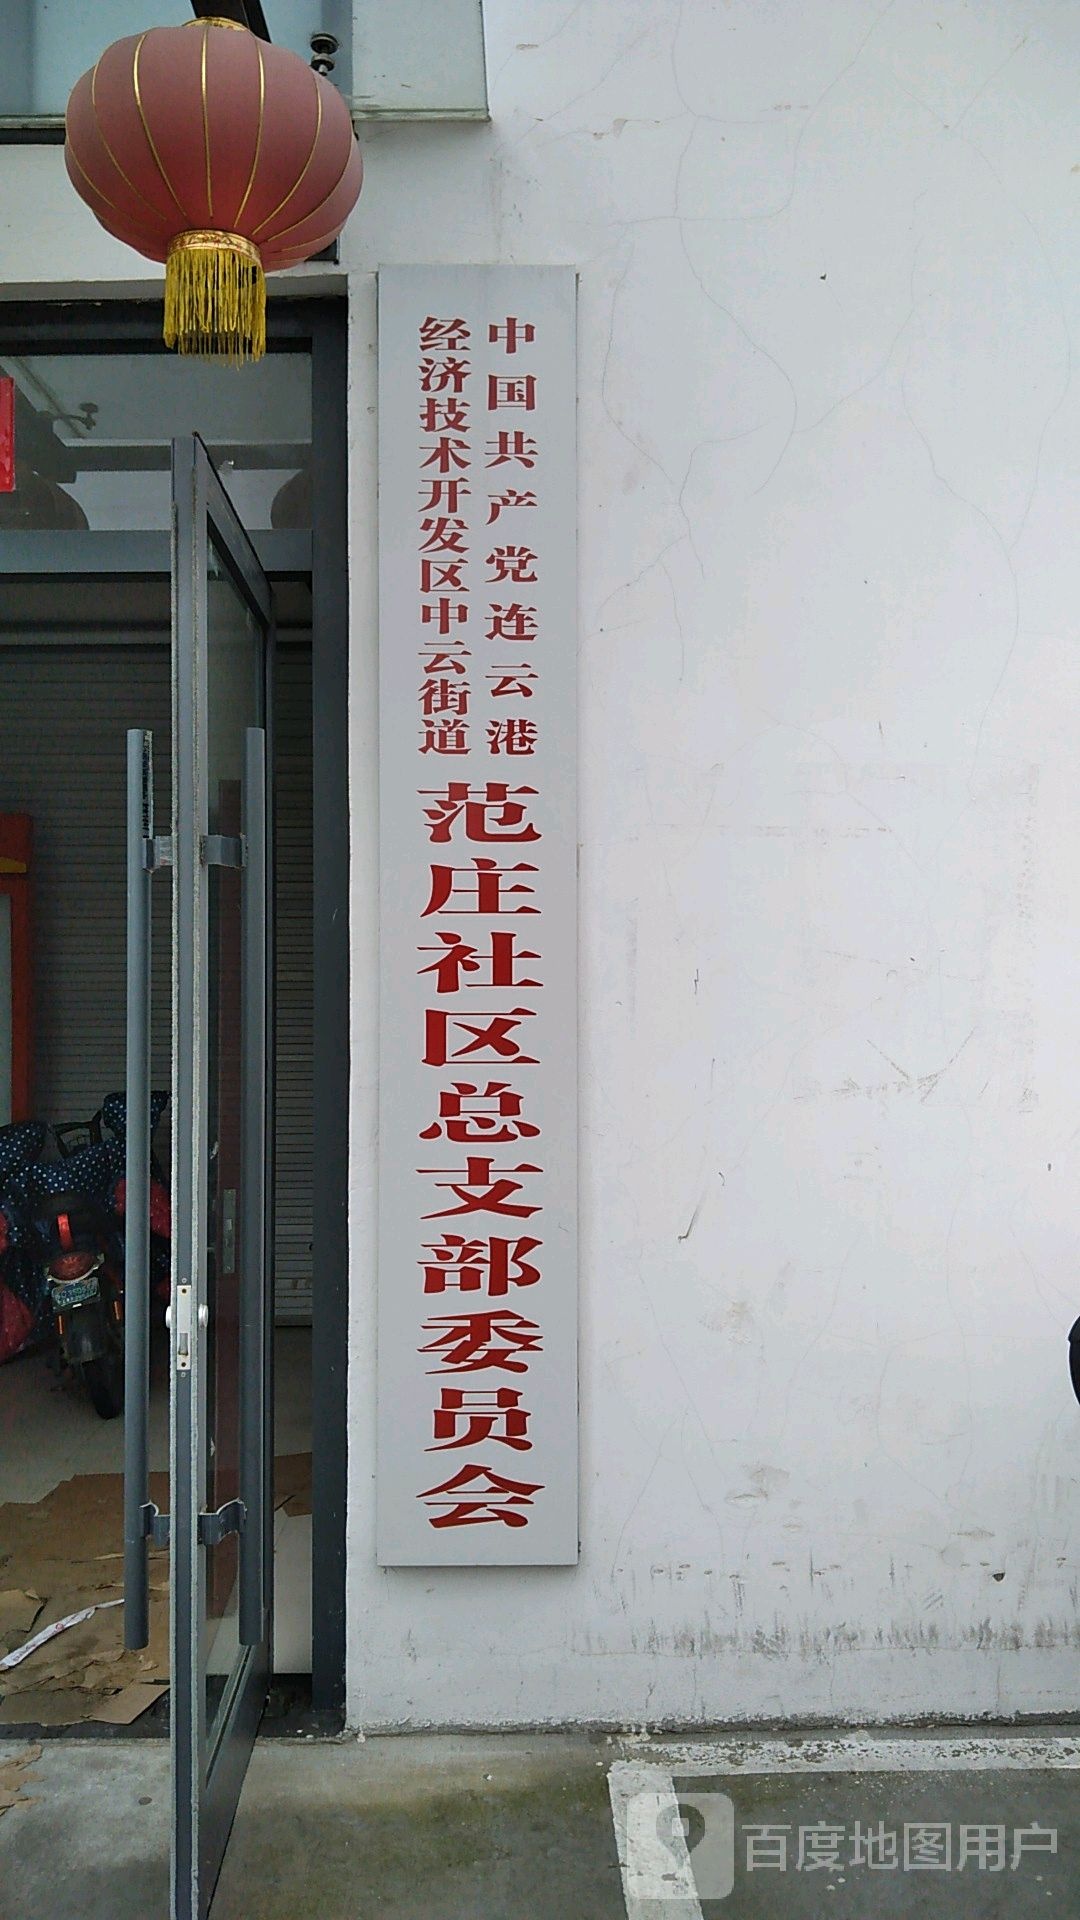 中国共产党连云港
经济技术开发区中云街道
范庄社区总支部委员会
百度地图用户